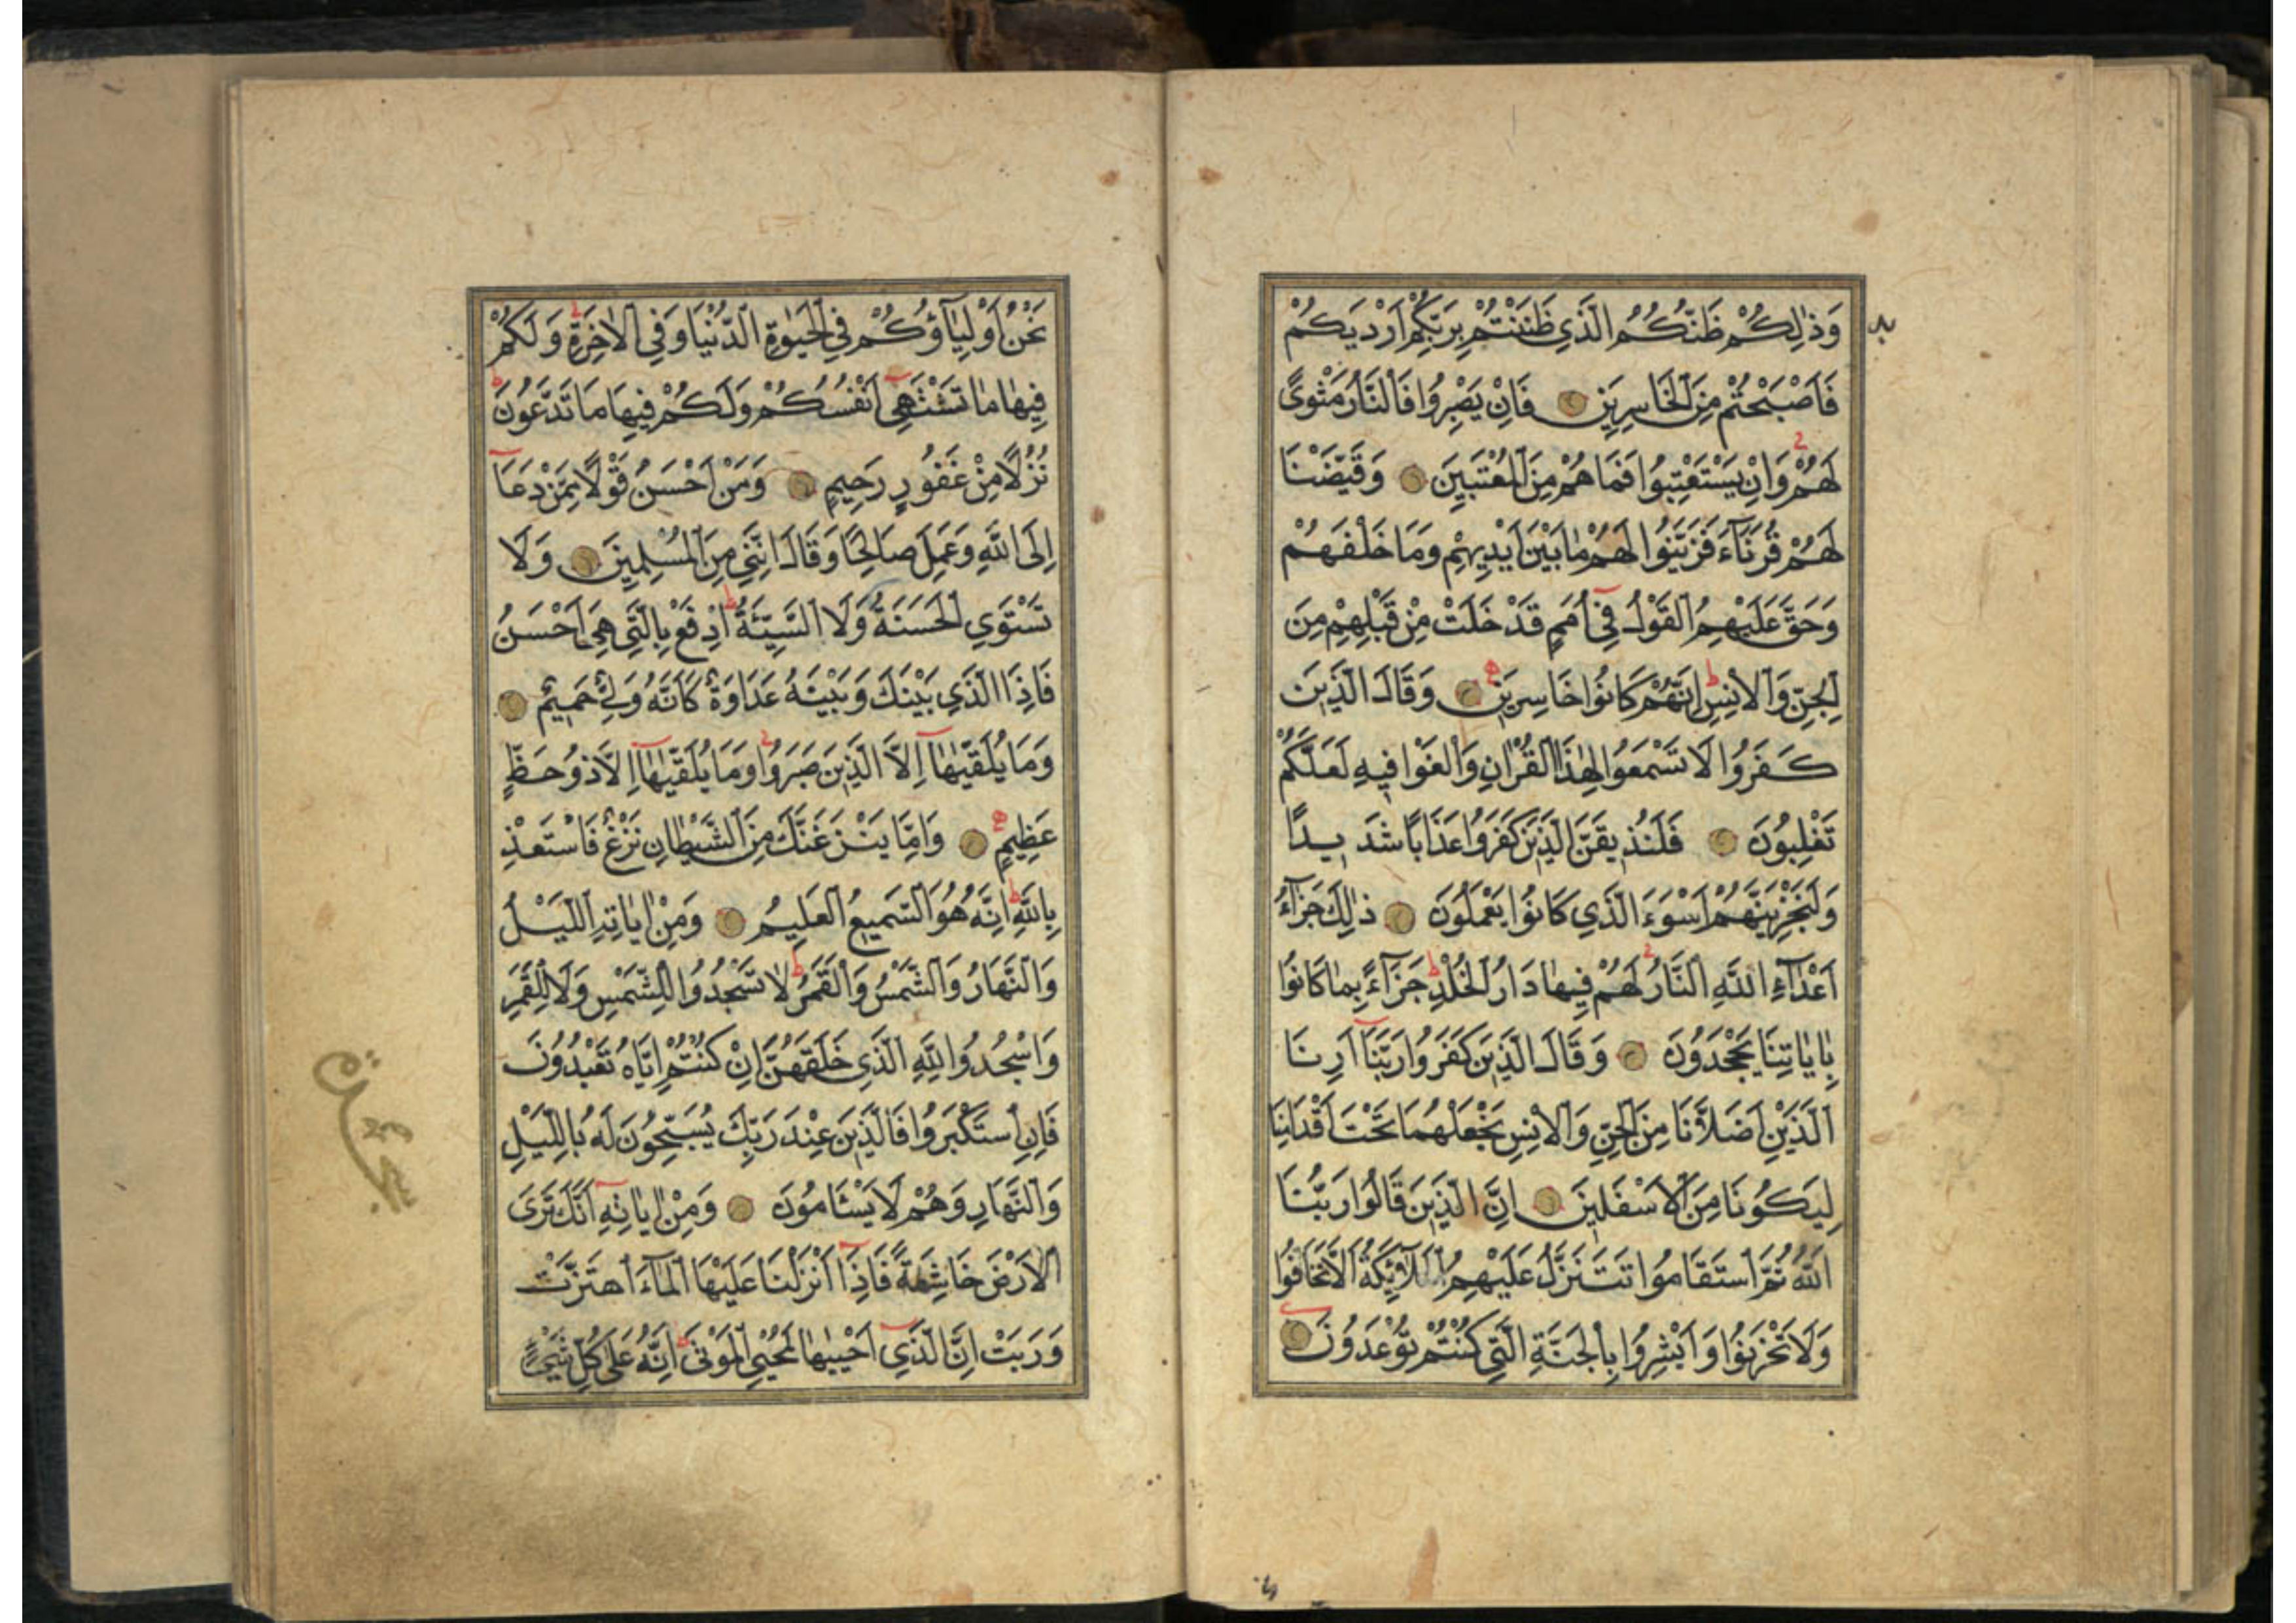 وَذٰلِكُمْ ظَنُّكُمُ الَّذِي ظَنَنْتُمْ بِرَبِّكُمْ اَرْدٰيكُمْ
فَاَصْبَحْتُمْ مِنَ الْخَاسِرِينَ فَاِنْ يَصْبِرُوا فَالنَّارُ مَثْوًى
لَهُمْ وَاِنْ يَسْتَعْتِبُوا فَمَا هُمْ مِنَ الْمُعْتَبِينَ وَقَيَّضْنَا
لَهُمْ قُرَنَٓاءَ فَزَيَّنُوا لَهُمْ مَا بَيْنَ اَيْدِيهِمْ وَمَا خَلْفَهُمْ
وَحَقَّ عَلَيْهِمُ الْقَوْلُ فِٓي اُمَمٍ قَدْ خَلَتْ مِنْ قَبْلِهِمْ مِنَ
الْجِنِّ وَالْاِنْسِ اِنَّهُمْ كَانُوا خَاسِرِينَ وَقَالَ الَّذِينَ
كَفَرُوا لَا تَسْمَعُوا لِهٰذَا الْقُرْاٰنِ وَالْغَوْا فِيهِ لَعَلَّكُمْ
تَغْلِبُونَ فَلَنُذِيقَنَّ الَّذِينَ كَفَرُوا عَذَابًا شَدِيدًا
وَلَنَجْزِيَنَّهُمْ اَسْوَءَ الَّذِي كَانُوا يَعْمَلُونَ ذٰلِكَ جَزَٓاءُ
اَعْدَٓاءِ اللّٰهِ النَّارُ لَهُمْ فِيهَا دَارُ الْخُلْدِ جَزَٓاءً بِمَا كَانُوا
بِاٰيَاتِنَا يَجْحَدُونَ وَقَالَ الَّذِينَ كَفَرُوا رَبَّنَٓا اَرِنَا
الَّذَيْنِ اَضَلَّانَا مِنَ الْجِنِّ وَالْاِنْسِ نَجْعَلْهُمَا تَحْتَ اَقْدَامِنَا
لِيَكُونَا مِنَ الْاَسْفَلِينَ اِنَّ الَّذِينَ قَالُوا رَبُّنَا
اللّٰهُ ثُمَّ اسْتَقَامُوا تَتَنَزَّلُ عَلَيْهِمُ الْمَلٰٓئِكَةُ اَلَّا تَخَافُوا
وَلَا تَحْزَنُوا وَاَبْشِرُوا بِالْجَنَّةِ الَّتِي كُنْتُمْ تُوعَدُونَ
نَحْنُ اَوْلِيَٓاؤُ۬كُمْ فِي الْحَيٰوةِ الدُّنْيَا وَفِي الْاٰخِرَةِ وَلَكُمْ
فِيهَا مَا تَشْتَهِٓي اَنْفُسُكُمْ وَلَكُمْ فِيهَا مَا تَدَّعُونَ
نُزُلًا مِنْ غَفُورٍ رَحِيمٍ وَمَنْ اَحْسَنُ قَوْلًا مِمَّنْ دَعَٓا
اِلَى اللّٰهِ وَعَمِلَ صَالِحًا وَقَالَ اِنَّنِي مِنَ الْمُسْلِمِينَ وَلَا
تَسْتَوِي الْحَسَنَةُ وَلَا السَّيِّئَةُ اِدْفَعْ بِالَّتِي هِيَ اَحْسَنُ
فَاِذَا الَّذِي بَيْنَكَ وَبَيْنَهُ عَدَاوَةٌ كَاَنَّهُ وَلِيٌّ حَمِيمٌ
وَمَا يُلَقّٰيهَٓا اِلَّا الَّذِينَ صَبَرُوا وَمَا يُلَقّٰيهَٓا اِلَّا ذُو حَظٍّ
عَظِيمٍ وَاِمَّا يَنْزَغَنَّكَ مِنَ الشَّيْطَانِ نَزْغٌ فَاسْتَعِذْ
بِاللّٰهِ اِنَّهُ هُوَ السَّمِيعُ الْعَلِيمُ وَمِنْ اٰيَاتِهِ اللَّيْلُ
وَالنَّهَارُ وَالشَّمْسُ وَالْقَمَرُ لَا تَسْجُدُوا لِلشَّمْسِ وَلَا لِلْقَمَرِ
وَاسْجُدُوا لِلّٰهِ الَّذِي خَلَقَهُنَّ اِنْ كُنْتُمْ اِيَّاهُ تَعْبُدُونَ
فَاِنِ اسْتَكْبَرُوا فَالَّذِينَ عِنْدَ رَبِّكَ يُسَبِّحُونَ لَهُ بِاللَّيْلِ
وَالنَّهَارِ وَهُمْ لَا يَسْئَامُونَ وَمِنْ اٰيَاتِهِٓ اَنَّكَ تَرَى
الْاَرْضَ خَاشِعَةً فَاِذَٓا اَنْزَلْنَا عَلَيْهَا الْمَٓاءَ اهْتَزَّتْ
وَرَبَتْ اِنَّ الَّذِٓي اَحْيَيٰهَا لَمُحْيِي الْمَوْتٰى اِنَّهُ عَلٰى كُلِّ شَيْءٍ
سجدة